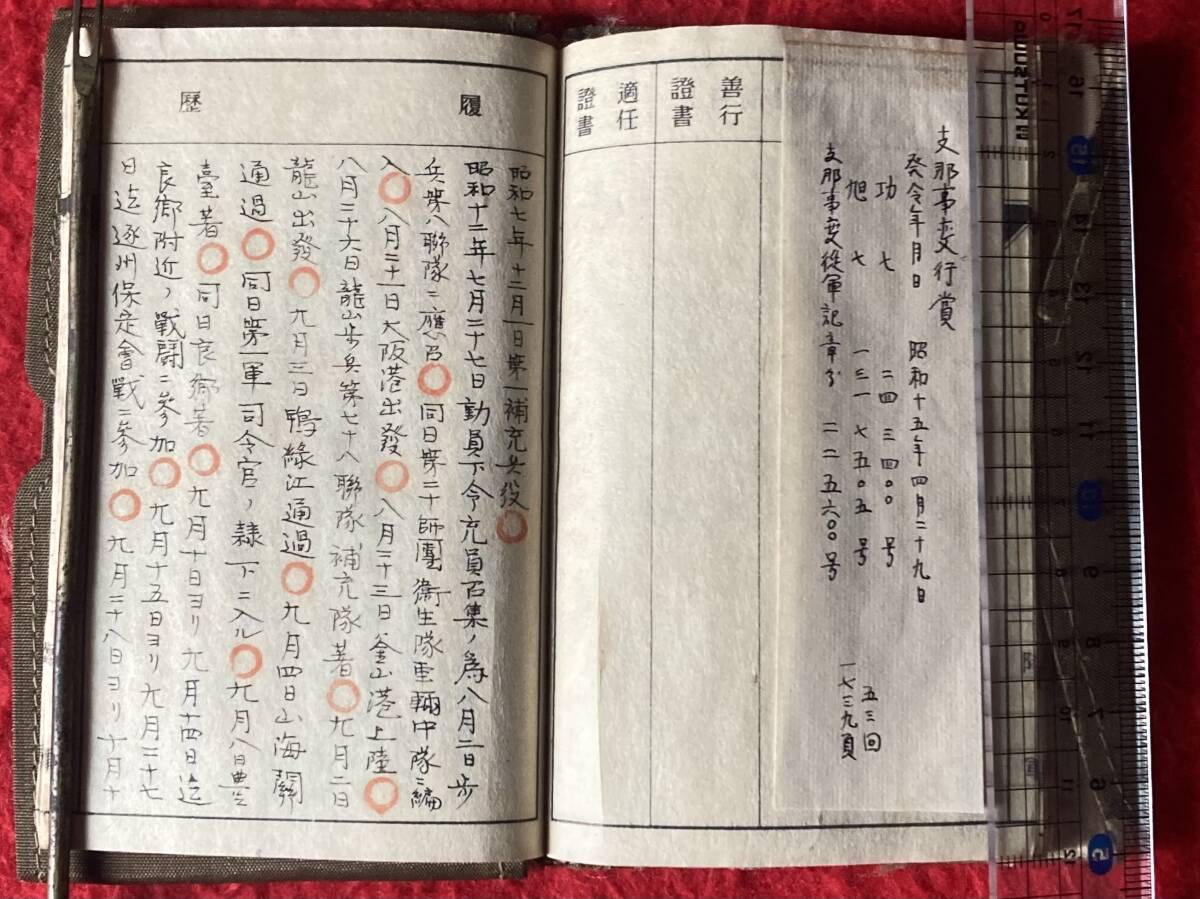 支那事変行賞
発令年月日 昭和十五年四月二十九日
功七 二四三四〇〇号
旭七 一三一七五〇五号
支那事変従軍記章 二二五六〇〇号
五三回
一七三九頁
善行證書
適任證書
履歷
昭和七年十二月一日第一補充兵役〇
昭和十二年七月二十七日動員下令充員召集ノ為八月二日歩
兵第八聯隊ニ應召〇同日第二十師團衛生隊車輛中隊ニ編
入〇八月二十一日大阪港出發〇八月二十三日釜山港上陸〇
八月二十六日龍山歩兵第七十八聯隊補充隊著〇九月二日
龍山出發〇九月三日鴨綠江通過〇九月四日山海關
通過〇同日第一軍司令官ノ隷下ニ入ル〇九月八日豊
臺著〇同日良郷著〇九月十日ヨリ九月十四日迄
良郷附近ノ戰闘ニ參加〇九月十五日ヨリ九月二十七
日迄逐州保定會戰ニ參加〇九月二十八日ヨリ十月十